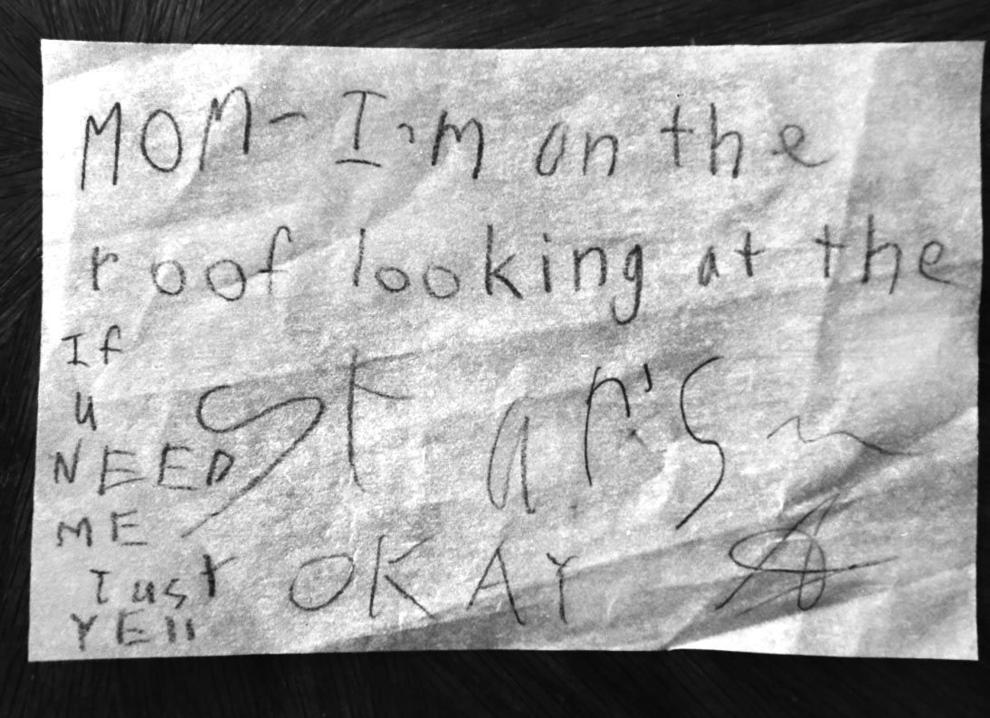 MOM- I'm on the
roof looking at the
star's ~
If
u
NEED
ME
Just
YEll
OKAY